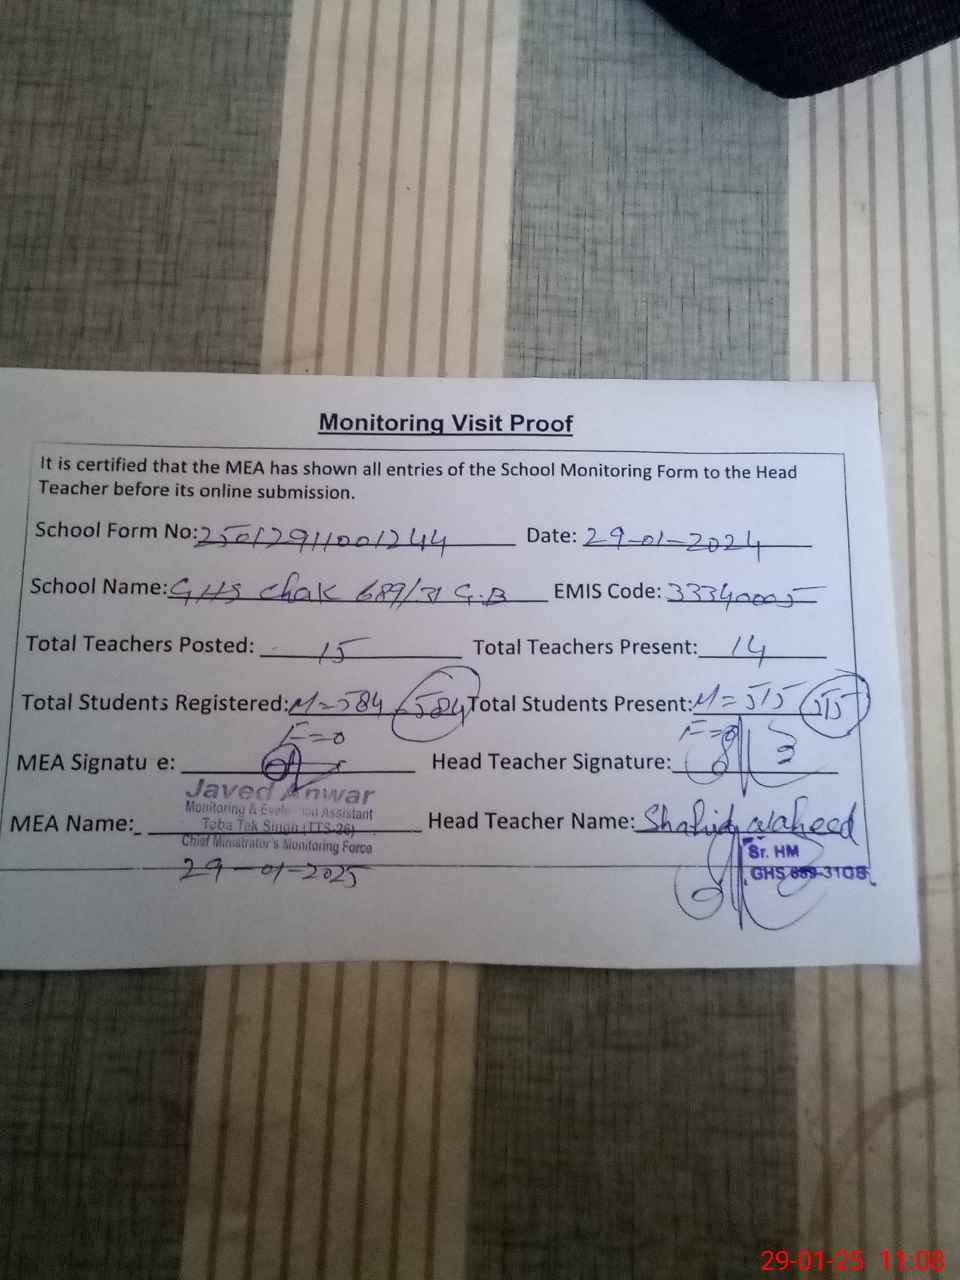 Monitoring Visit Proof
It is certified that the MEA has shown all entries of the School Monitoring Form to the Head
Teacher before its online submission.
School Form No: 250129110001244 Date: 29-01-2024
School Name: GHS Chak 689/31 G.B EMIS Code: 33340005
Total Teachers Posted: 15 Total Teachers Present: 14
Total Students Registered: M=584 584 Total Students Present: M=515 515
F=0 F=0
MEA Signatu e: Head Teacher Signature:
Javed Anwar
Monitoring & Assistant
MEA Name: Toba Tek Singh (TTS-26) Head Teacher Name: Shahid Waheed
Chief Ministrator's Monitoring Force
Sr. HM
29-01-2025
GHS 689-31GB
29-01-25 11:08